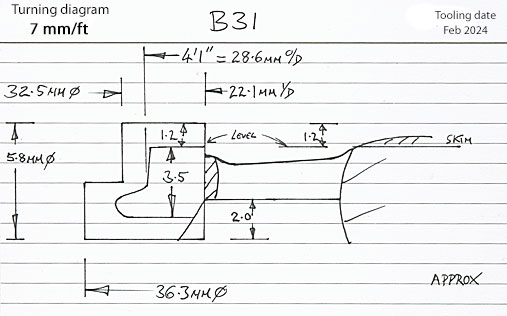 Turning diagram
7 mm/ft
B31
Tooling date
Feb 2024
4'1" = 28.6MM O/D
32.5MM Ø
22.1MM I/D
1.2
LEVEL
1.2
SKIM
5.8MM Ø
3.5
2.0
36.3MM Ø
APPROX